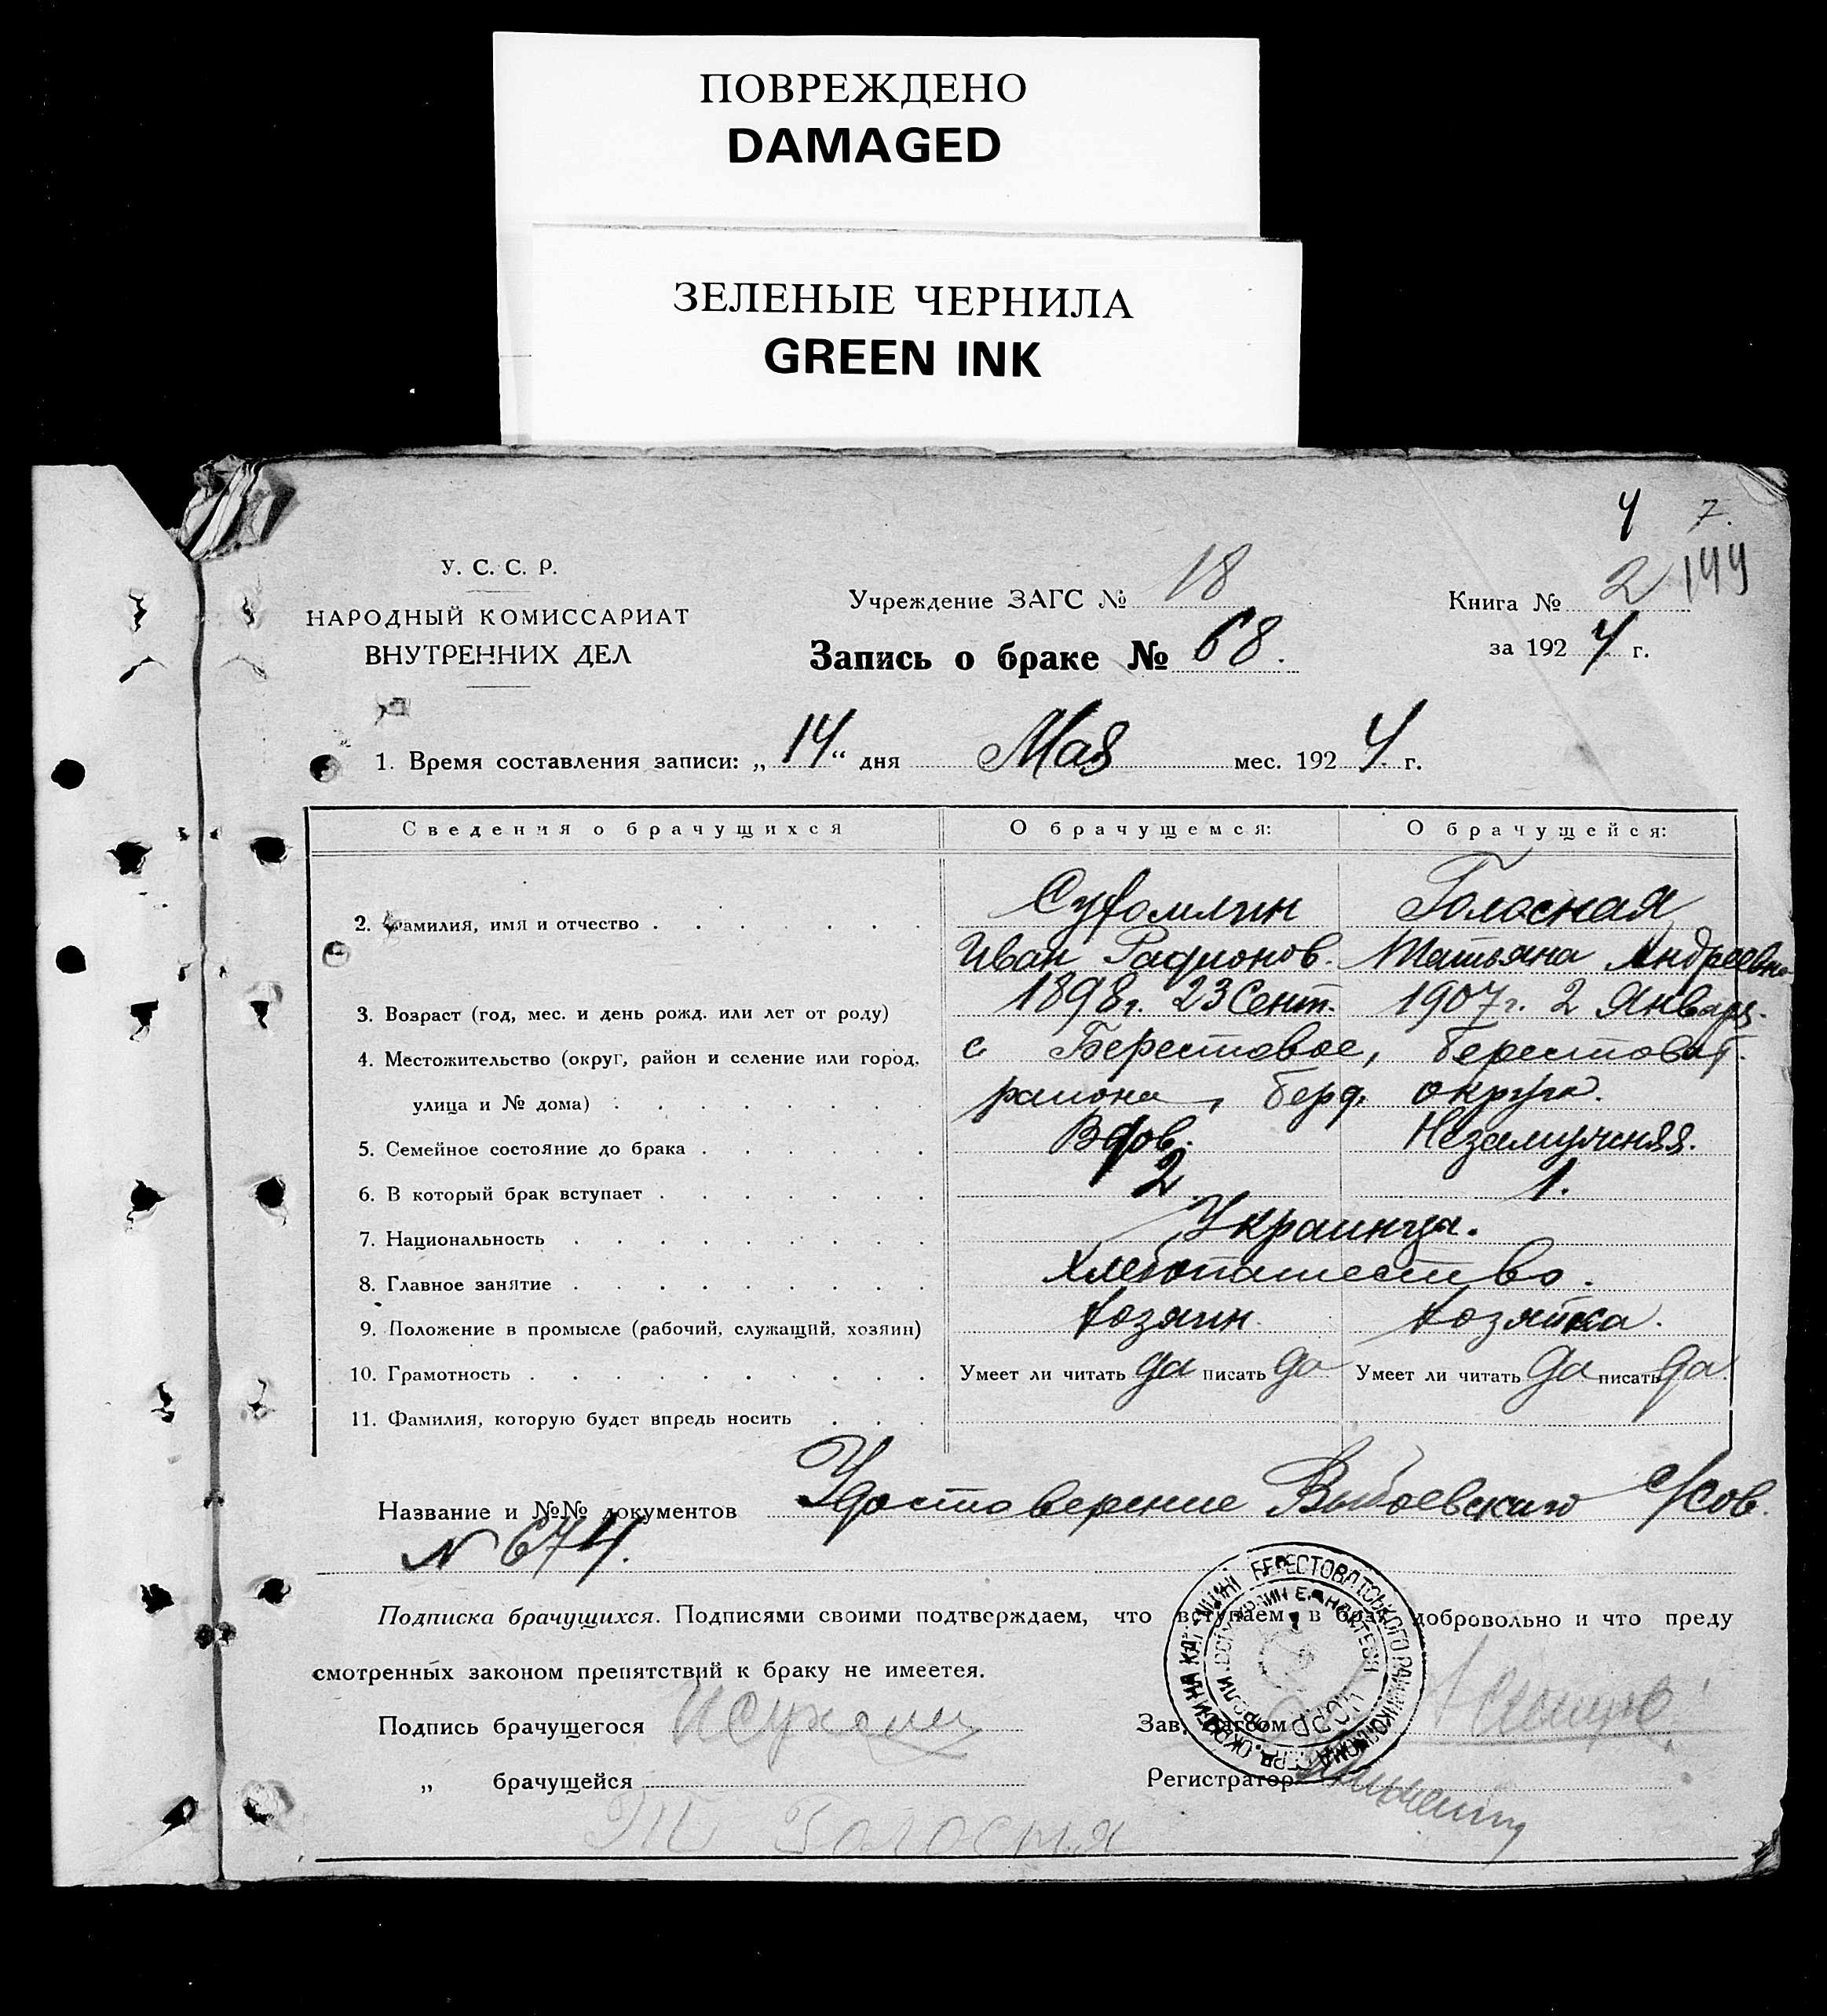 ПОВРЕЖДЕНО
DAMAGED
ЗЕЛЕНЫЕ ЧЕРНИЛА
GREEN INK
4 7.
144
У. С. С. Р.
НАРОДНЫЙ КОМИССАРИАТ
ВНУТРЕННИХ ДЕЛ
Учреждение ЗАГС № 18
Запись о браке № 68.
Книга № 2
за 1924 г.
1. Время составления записи: „14“ дня Мая мес. 1924 г.
Сведения о брачущихся О брачущемся: О брачущейся:
2. Фамилия, имя и отчество Сухомлин Голосная
Иван Радионов. Татьяна Андреевна
3. Возраст (год, мес. и день рожд. или лет от роду) 1898г. 23 Сент. 1907г. 2 Января.
4. Местожительство (округ, район и селение или город, с Берестовое, Берестоват.
улица и № дома) района, Берд. округа.
5. Семейное состояние до брака Вдов. Незамужняя.
6. В который брак вступает 2. 1.
7. Национальность Украинцы.
8. Главное занятие Хлебопашество.
9. Положение в промысле (рабочий, служащий, хозяин) хозяин хозяйка.
10. Грамотность Умеет ли читать да писать да Умеет ли читать да писать да
11. Фамилия, которую будет впредь носить
Название и №№ документов Удостоверение с/сов.
N 674.
Подписка брачущихся. Подписями своими подтверждаем, что вступаем в брак добровольно и что преду
смотренных законом препятствий к браку не имеется.
Подпись брачущегося ИСухомли
Зав. Загсом
„ брачущейся
Регистратор
Т Голосная